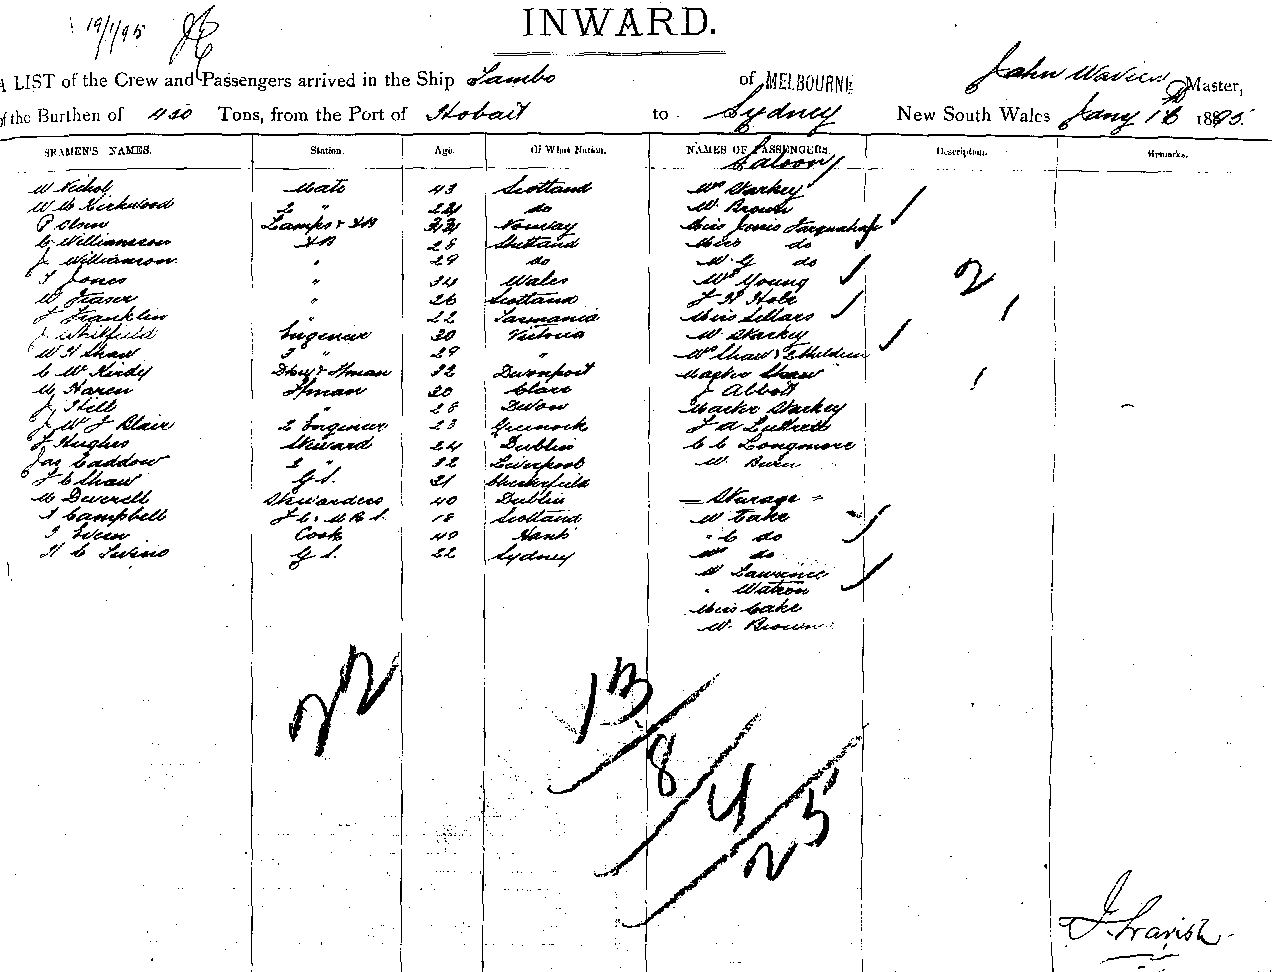 19/1/95
INWARD.
A LIST of the Crew and Passengers arrived in the Ship Tambo of MELBOURNE John Master,
of the Burthen of Tons, from the Port of Hobart to Sydney New South Wales Jany 18 1895.
SEAMEN'S NAMES. Station. Age. Of What Nation. NAMES OF PASSENGERS. Description. Remarks.
Saloon
W Nichol Mate 43 Scotland Mrs Starkey
W Mc Kirkwood 2 " do W. Brown
P Olsen Lamps & AB Norway Miss Farquahar
C Williamson AB 28 Shetland Miss do
J Williamson " 29 do W G do
T Jones " 34 Wales Mrs Young
W Fraser " 26 Scotland J H Hole
J Franklin " 22 Tasmania Miss Sellars
J Whitfield Engineer 30 Victoria W Starkey
W H Shaw 29 " Mrs Shaw & Children
C Mc Kirdy Dkey & Fman 32 Devonport Master Shaw
M Haren Fman 30 Clare J Abbott
J Hill " 28 Devon Master Starkey
J W J Blair 2 Engineer 23 Greenock
J Hughes Steward 24 Dublin C C Longmore
Jas Caddow 2 " 32 Liverpool W
J C Shaw G S. 21 Chesterfield
M Deverell Stewardess 40 Dublin Sterage
A Campbell 18 Scotland W Cake
Cook 40 Hants " C do
H C G S. 22 Sydney Mrs do
W Lawrence
" Watson
Miss Cake
W. Brown
2
22
13
8
4
25